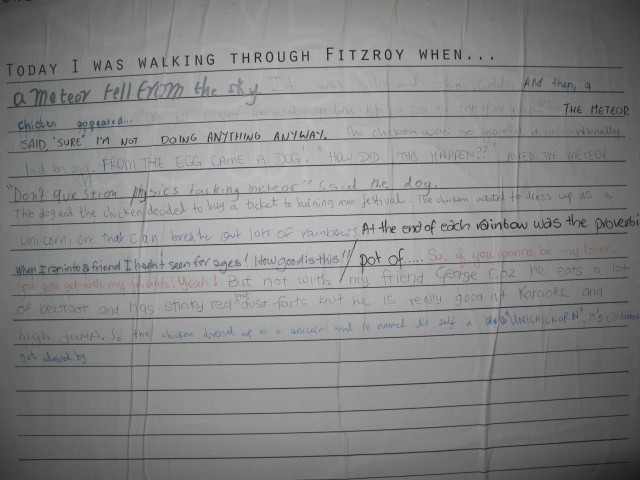 TODAY I WAS WALKING THROUGH FITZROY WHEN...
a meteor fell from the sky It was And then, a
chicken appeared... THE METEOR
SAID, "SURE" I'M NOT DOING ANYTHING ANYWAY. The chicken was so
laid an egg. FROM THE EGG CAME A DOG! "HOW DID THIS HAPPEN??" ASKED THE METEOR
"Don't question physics lacking meteor" said the dog.
The dog and the chicken decided to buy a ticket to burning man festival. The chicken wanted to dress up as a
unicorn, one that can breathe out lots of rainbows At the end of each rainbow was the proverbi
When I ran into a friend I hadn't seen for ages! How good is this!! / pot of..... So, if you wanna be my lover,
you gotta get with my friends! Yeah! But not with my friend George Coz he eats a lot
of beetroot and has stinky red dust farts but he is really good at Karaoke and
high jump. So the chicken dressed up as a unicorn and he named his self a "UNICHICKORN".
got by